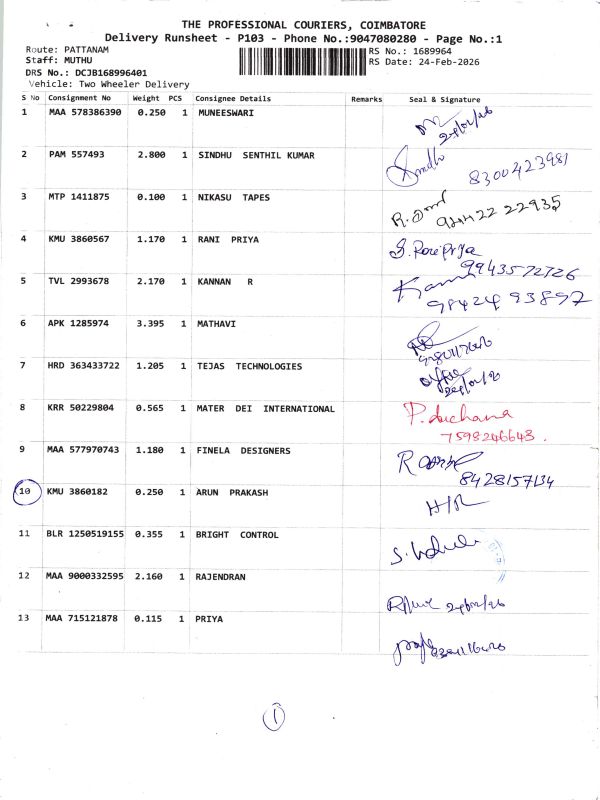 THE PROFESSIONAL COURIERS, COIMBATORE
Delivery Runsheet - P103 - Phone No.:9047080280 - Page No.:1
Route: PATTANAM
RS No.: 1689964
Staff: MUTHU
RS Date: 24-Feb-2026
DRS No.: DCJB168996401
Vehicle: Two Wheeler Delivery
S No Consignment No Weight PCS Consignee Details Remarks Seal & Signature
1 MAA 578386390 0.250 1 MUNEESWARI
2 PAM 557493 2.800 1 SINDHU SENTHIL KUMAR Sindhu 8300423981
3 MTP 1411875 0.100 1 NIKASU TAPES 94422 22935
4 KMU 3860567 1.170 1 RANI PRIYA
9943572726
5 TVL 2993678 2.170 1 KANNAN R
98424 93897
6 APK 1285974 3.395 1 MATHAVI
7 HRD 363433722 1.205 1 TEJAS TECHNOLOGIES
8 KRR 50229804 0.565 1 MATER DEI INTERNATIONAL
7598246643.
9 MAA 577970743 1.180 1 FINELA DESIGNERS
8428157134
10 KMU 3860182 0.250 1 ARUN PRAKASH H/R
11 BLR 1250519155 0.355 1 BRIGHT CONTROL
12 MAA 9000332595 2.160 1 RAJENDRAN
13 MAA 715121878 0.115 1 PRIYA
1